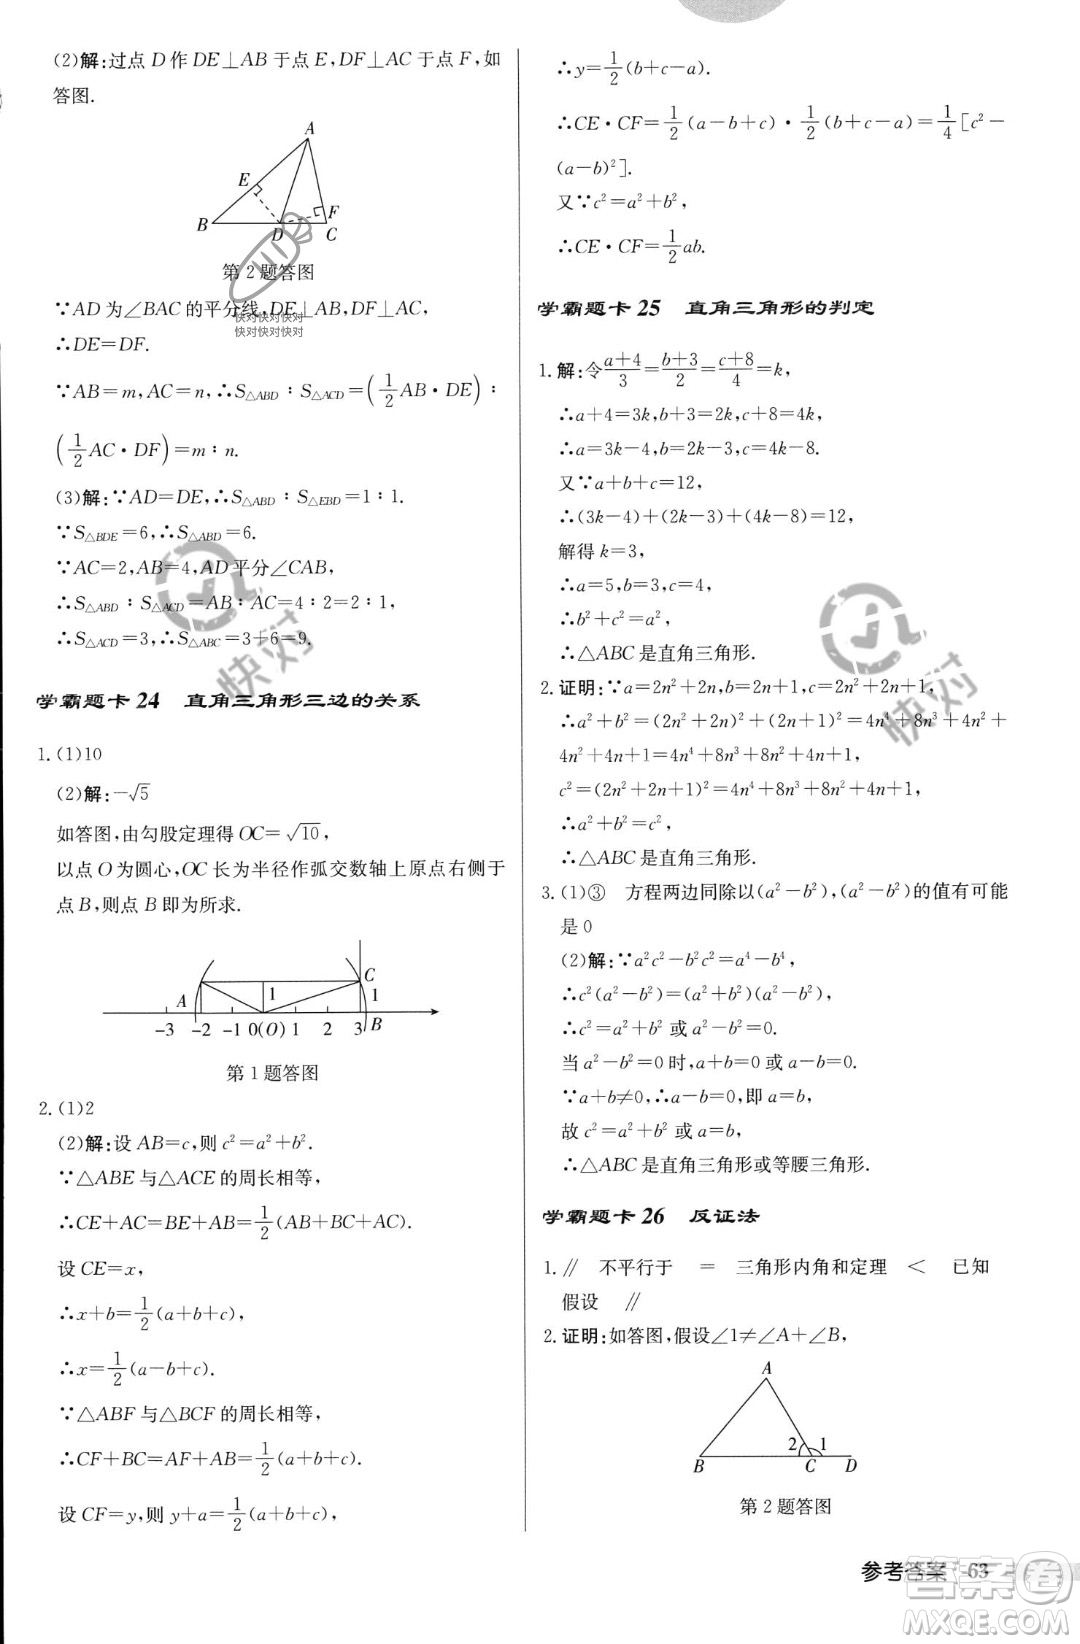 (2)解:过点 D 作 DE⊥AB 于点 E,DF⊥AC 于点 F,如
答图.
A
E
F
B
D
C
第 2 题答图
∵AD 为∠BAC 的平分线,DE⊥AB,DF⊥AC,
快对快对快对
快对快对快对
∴DE=DF.
∵AB=m,AC=n,∴S△ABD∶S△ACD=(1/2 AB·DE)∶
(1/2 AC·DF)=m∶n.
(3)解:∵AD=DE,∴S△ABD∶S△EBD=1∶1.
∵S△BDE=6,∴S△ABD=6.
∵AC=2,AB=4,AD 平分∠CAB,
∴S△ABD∶S△ACD=AB∶AC=4∶2=2∶1,
∴S△ACD=3,∴S△ABC=3+6=9.
快对
学霸题卡 24 直角三角形三边的关系
1.(1)10
(2)解:-√5
如答图,由勾股定理得 OC=√10,
以点 O 为圆心,OC 长为半径作弧交数轴上原点右侧于
点 B,则点 B 即为所求.
A
C
1
1
-3 -2 -1 0(O) 1 2 3 B
第 1 题答图
2.(1)2
(2)解:设 AB=c,则 c²=a²+b².
∵△ABE 与△ACE 的周长相等,
∴CE+AC=BE+AB=1/2(AB+BC+AC).
设 CE=x,
∴x+b=1/2(a+b+c),
∴x=1/2(a-b+c).
∵△ABF 与△BCF 的周长相等,
∴CF+BC=AF+AB=1/2(a+b+c).
设 CF=y,则 y+a=1/2(a+b+c),
∴y=1/2(b+c-a).
∴CE·CF=1/2(a-b+c)·1/2(b+c-a)=1/4[c²-
(a-b)²].
又∵c²=a²+b²,
∴CE·CF=1/2ab.
学霸题卡 25 直角三角形的判定
1.解:令(a+4)/3=(b+3)/2=(c+8)/4=k,
∴a+4=3k,b+3=2k,c+8=4k,
∴a=3k-4,b=2k-3,c=4k-8.
又∵a+b+c=12,
∴(3k-4)+(2k-3)+(4k-8)=12,
解得 k=3,
∴a=5,b=3,c=4,
∴b²+c²=a²,
∴△ABC 是直角三角形.
快对
2.证明:∵a=2n²+2n,b=2n+1,c=2n²+2n+1,
∴a²+b²=(2n²+2n)²+(2n+1)²=4n⁴+8n³+4n²+
4n²+4n+1=4n⁴+8n³+8n²+4n+1,
c²=(2n²+2n+1)²=4n⁴+8n³+8n²+4n+1,
∴a²+b²=c²,
∴△ABC 是直角三角形.
3.(1)③ 方程两边同除以(a²-b²),(a²-b²)的值有可能
是 0
(2)解:∵a²c²-b²c²=a⁴-b⁴,
∴c²(a²-b²)=(a²+b²)(a²-b²),
∴c²=a²+b² 或 a²-b²=0.
当 a²-b²=0 时,a+b=0 或 a-b=0.
∵a+b≠0,∴a-b=0,即 a=b,
故 c²=a²+b² 或 a=b,
∴△ABC 是直角三角形或等腰三角形.
学霸题卡 26 反证法
1.∥ 不平行于 = 三角形内角和定理 < 已知
假设 ∥
2.证明:如答图,假设∠1≠∠A+∠B,
A
2 1
B C D
第 2 题答图
参考答案 ·63·
答案圈
MXQE.COM